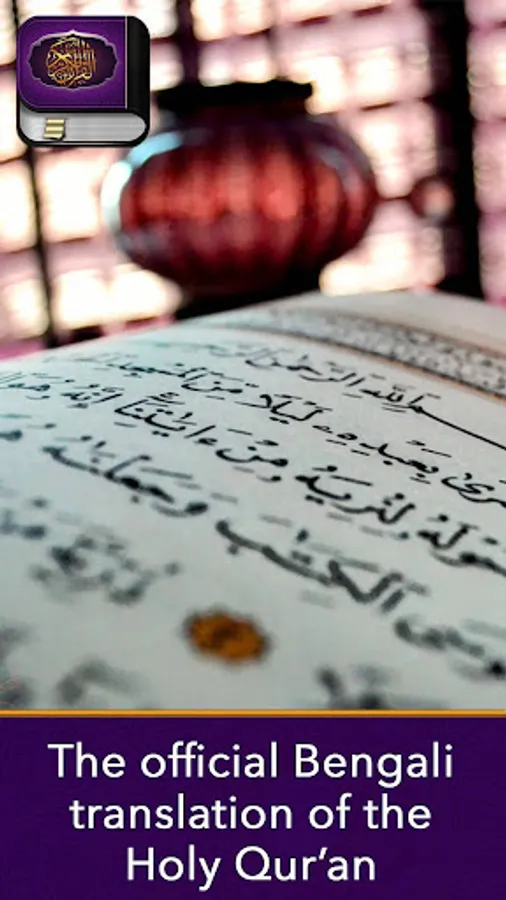 بِسْمِ ٱللَّهِ ٱلرَّحْمَٰنِ
بِعَبْدِهِۦ لَيْلًا مِّنَ ٱلْمَسْجِدِ
حَوْلَهُۥ لِنُرِيَهُۥ مِنْ ءَايَٰتِنَآ إِنَّهُۥ هُوَ
ٱلْكِتَٰبَ وَجَعَلْنَٰهُ
The official Bengali
translation of the
Holy Qur'an